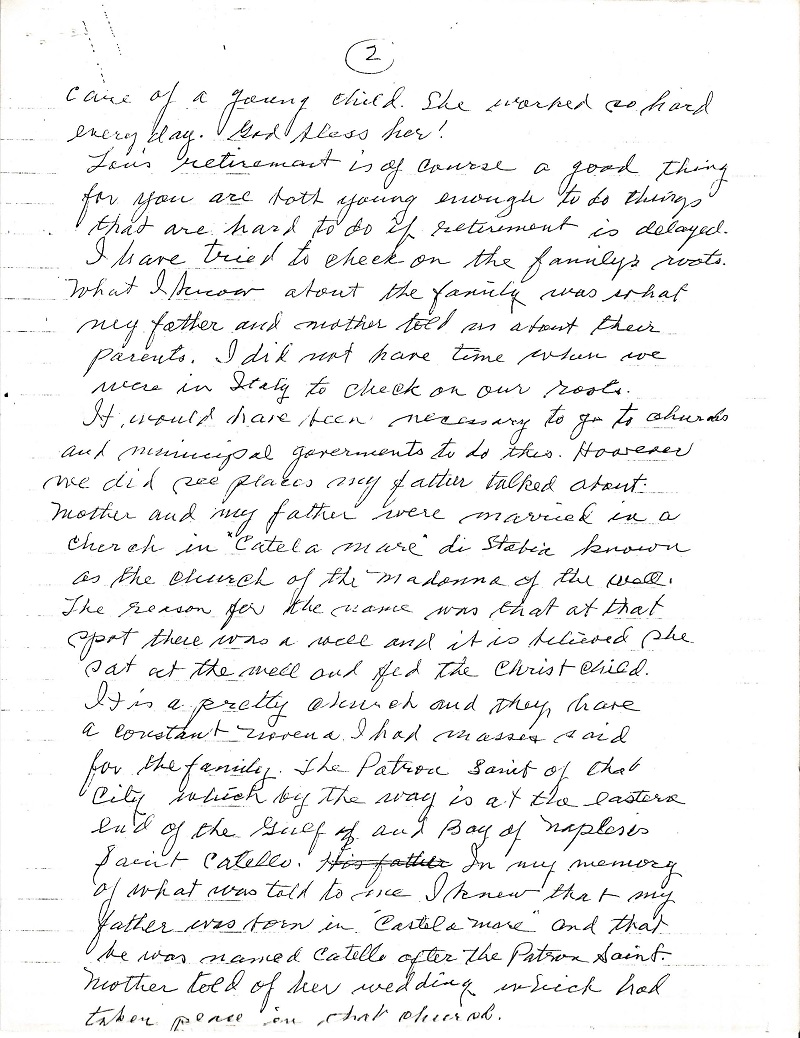 2
care of a young child. She worked so hard
every day. God bless her!
Lou's retirement is of course a good thing
for you are both young enough to do things
that are hard to do if retirement is delayed.
I have tried to check on the family's roots.
What I know about the family was what
my father and mother told us about their
parents. I did not have time when we
were in Italy to check on our roots.
It would have been necessary to go to churchs
and municipal goverments to do this. However
we did see places my father talked about.
Mother and my father were married in a
church in "Catela mare" di Stabia known
as the church of the Madonna of the well.
The reason for the name was that at that
spot there was a well and it is believed she
sat at the well and fed the Christ Child.
It is a pretty church and they have
a constant novena I had masses said
for the family. The Patron Saint of that
City which by the way is at the eastern
end of the Gulf of and Bay of Naples is
Saint Catello. His father In my memory
of what was told to me I knew that my
father was born in "Castela mare" and that
he was named Catello after the Patron Saint.
Mother told of her wedding which had
taken peace in that church.